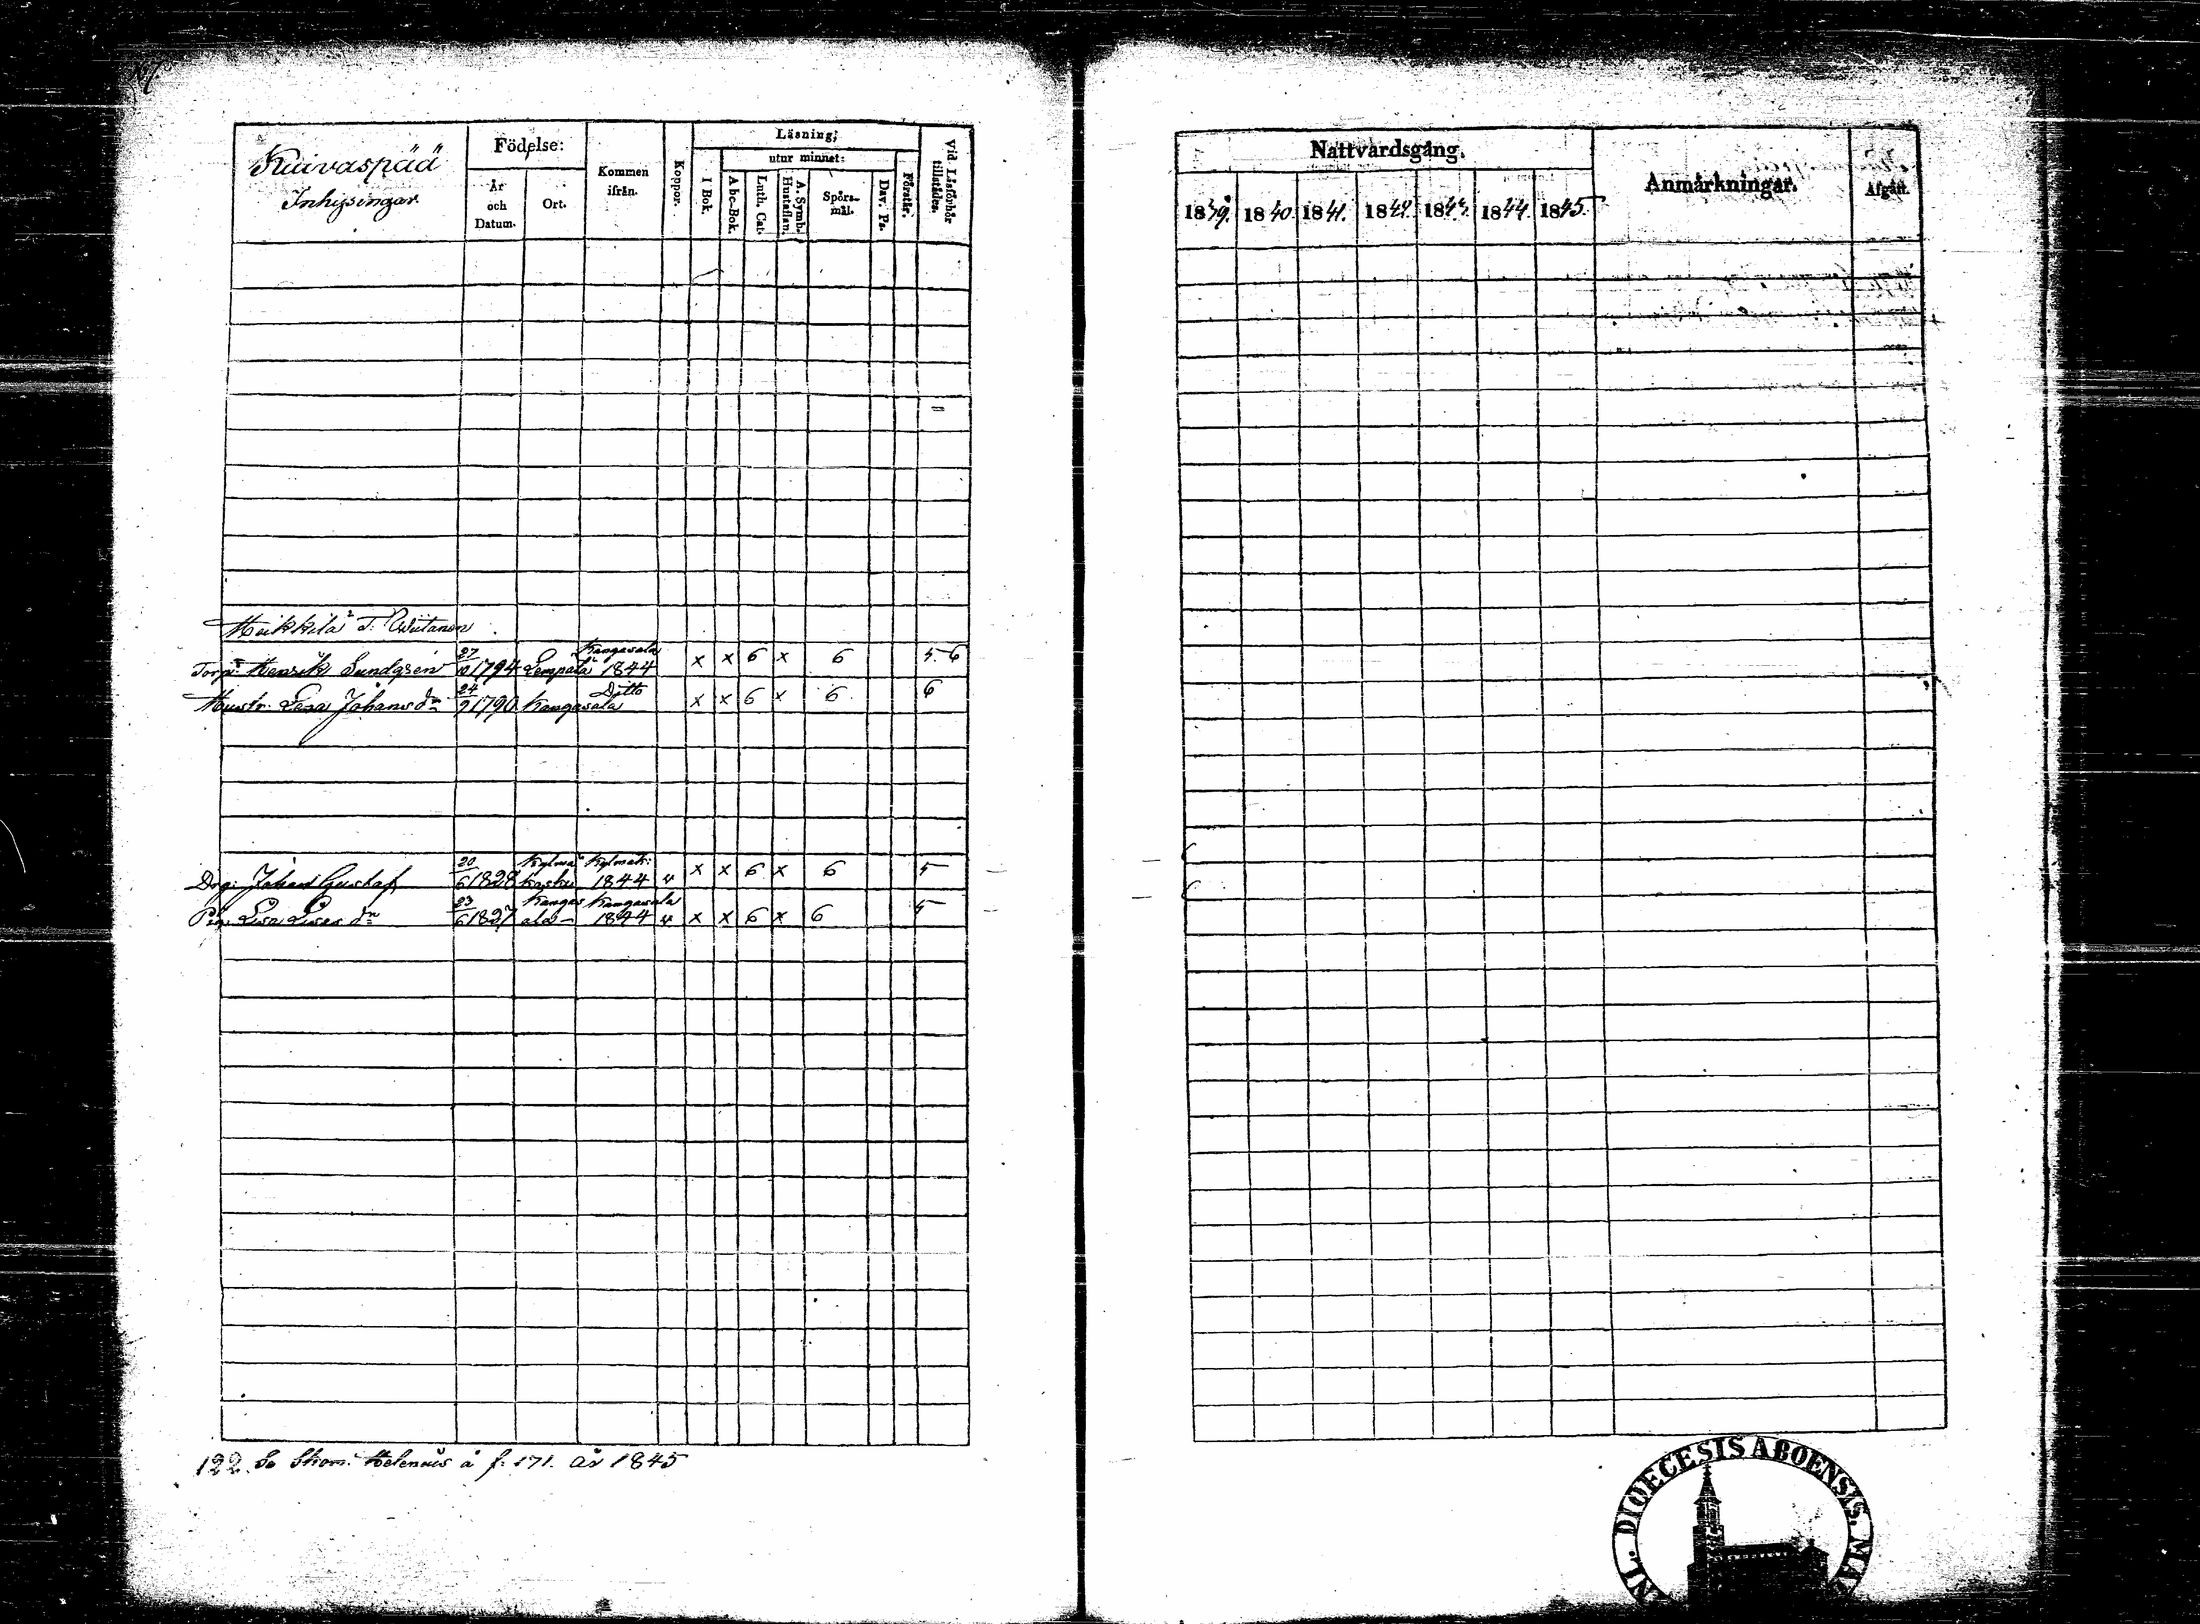 Kuivaspää
Inhysingar
Födelse:
År och Datum.
Ort.
Kommen ifrån.
Koppor.
Läsning;
I Bok.
utur minnet:
Abc-Bok.
Luth. Cat.
A. Symb. Hustaflan.
Spörsmål.
Dav. Ps.
Förstår.
Vid Läsförhör tillstädes.
Nattvardsgång.
1839. 1840. 1841. 1842. 1843. 1844. 1845.
Anmärkningar.
Afgått.
Torp: Henrik Sundqsén 27/10 1794 Lempälä Kangasala 1844 x x 6 x 6 5.6
Hustr. Lisa Johans dr 24/9 1790 Kangasala Ditto x x 6 x 6 6
Drg: Johan Gustaf 20/6 1828 Kylmä Koski Kylmäk: 1844 v x x 6 x 6 5
Pig. Lisa Lisas dr 23/6 1827 Kangas ala Kangasala 1844 v x x 6 x 6 5
122. Se Skom: Helenius å f. 171. år 1845
DIOECESIS ABOENSIS.